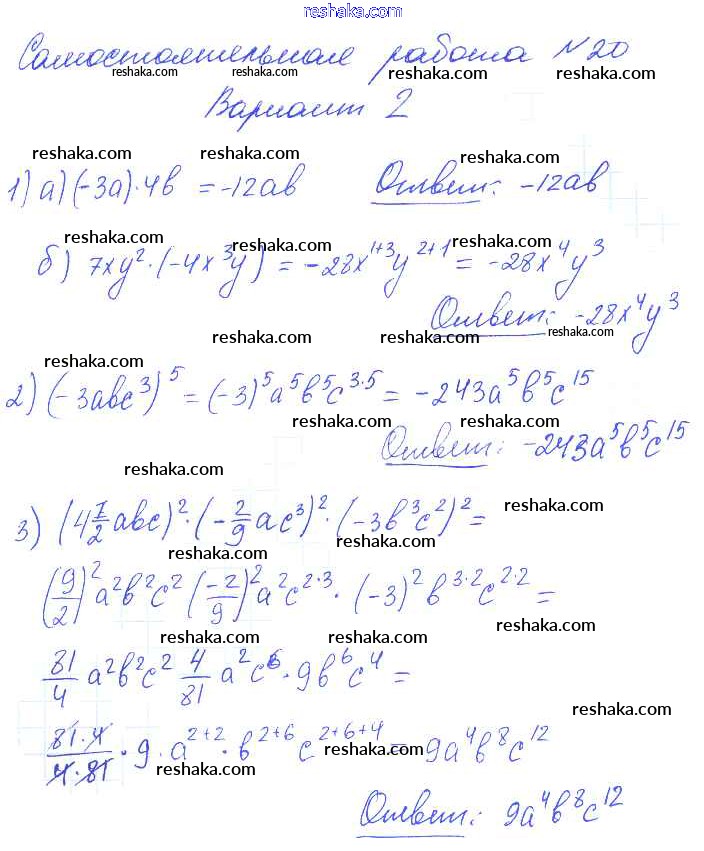 reshaka.com
Самостоятельная работа №20
reshaka.com reshaka.com reshaka.com reshaka.com
Вариант 2
reshaka.com reshaka.com reshaka.com
1) а) (-3a)·4b = -12ab Ответ: -12ab
reshaka.com reshaka.com reshaka.com
б) 7xy²·(-4x³y) = -28x¹⁺³y²⁺¹ = -28x⁴y³
Ответ: -28x⁴y³
reshaka.com reshaka.com
reshaka.com reshaka.com
2) (-3abc³)⁵ = (-3)⁵a⁵b⁵c³·⁵ = -243a⁵b⁵c¹⁵
reshaka.com reshaka.com
Ответ: -243a⁵b⁵c¹⁵
reshaka.com
3) (4 1/2 abc)²·(-2/9 ac³)²·(-3b³c²)² =
reshaka.com
reshaka.com reshaka.com
(9/2)² a²b²c² (-2/9)² a²c²·³·(-3)² b³·²c²·² =
reshaka.com reshaka.com reshaka.com
81/4 a²b²c² 4/81 a²c⁶·9b⁶c⁴ =
reshaka.com reshaka.com
81·4/4·81 · 9·a²⁺²·b²⁺⁶c²⁺⁶⁺⁴ = 9a⁴b⁸c¹²
reshaka.com reshaka.com
Ответ: 9a⁴b⁸c¹²
reshaka.com